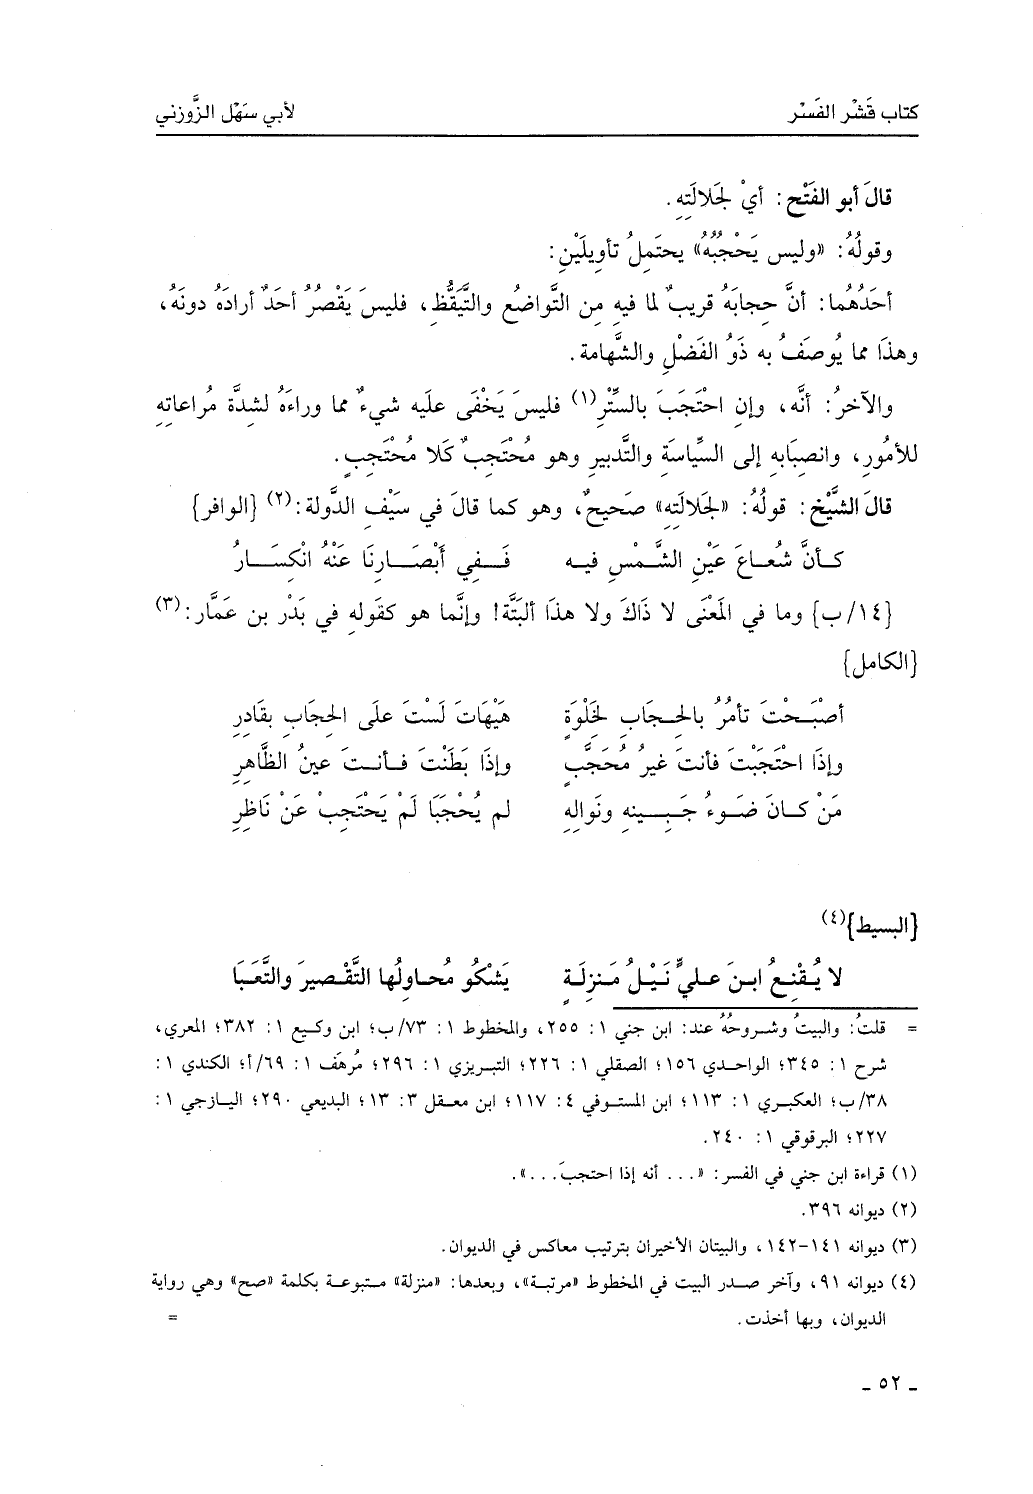 كتاب قَشْر الفَسْر
لأبي سَهْل الزَّوزني
قالَ أبو الفَتْح: أيْ لجَلالَتِهِ.
وقولُهُ: «وليس يَحْجُبُهُ» يحتَمِلُ تأويلَيْنِ:
أحَدُهُما: أنَّ حِجابَهُ قريبٌ لما فيه مِن التَّواضُعِ والتَّيَقُّظِ، فليسَ يَقْصُرُ أحَدٌ أرادَهُ دونَهُ،
وهذَا مما يُوصَفُ به ذَوُ الفَضْلِ والشَّهامة.
والآخرُ: أنَّه، وإنِ احْتَجَبَ بالسِّتْرِ(١) فليسَ يَخْفَى علَيه شيءٌ مما وراءَهُ لشدَّة مُراعاتِهِ
للأمُورِ، وانصِبَابه إلى السِّياسَةِ والتَّدبيرِ وهو مُحْتَجِبٌ كَلا مُحْتَجِبٍ.
قالَ الشَّيْخ: قولُهُ: «لجَلالَتِهِ» صَحيحٌ، وهو كما قالَ في سَيْفِ الدَّولة:(٢) {الوافر}
كــأنَّ شُعــاعَ عَيْنِ الشَّــمْسِ فيــه فَــفي أبْصَــارِنَا عَنْهُ انْكِسَــارُ
{١٤/ب} وما في المَعْنَى لا ذَاكَ ولا هذَا ألبَتَّة! وإنَّما هو كقَوله في بَدْر بن عَمَّار:(٣)
{الكامل}
أصْبَــحْتَ تأمُرُ بالحِــجابِ لخِلْوَةٍ هَيْهَاتَ لَسْتَ علَى الحِجَابِ بقَادِرِ
وإذَا احْتَجَبْتَ فأنتَ غيرُ مُحَجَّبٍ وإذَا بَطَنْتَ فــأنــتَ عينُ الظَّاهِرِ
مَنْ كــانَ ضَــوءُ جَــبِــينِهِ ونَوالِهِ لم يُحْجَبَا لَمْ يَحْتَجِبْ عَنْ نَاظِرِ
{البسيط}(٤)
لا يُقْنِعُ ابنَ عليٍّ نَيْلُ مَنزِلَةٍ يَشْكُو مُحاوِلُها التَّقْصيرَ والتَّعَبَا
= قلتُ: والبيتُ وشروحُهُ عند: ابن جني ١: ٢٥٥، والمخطوط ١: ٧٣/ب؛ ابن وكيع ١: ٣٨٢؛ المعري،
شرح ١: ٣٤٥؛ الواحدي ١٥٦؛ الصقلي ١: ٢٢٦؛ التبريزي ١: ٢٩٦؛ مُرهَف ١: ٦٩/أ؛ الكندي ١:
٣٨/ب؛ العكبري ١: ١١٣؛ ابن المستوفي ٤: ١١٧؛ ابن معقل ٣: ١٣؛ البديعي ٢٩٠؛ اليازجي ١:
٢٢٧؛ البرقوقي ١: ٢٤٠.
(١) قراءة ابن جني في الفسر: «... أنه إذا احتجبَ...».
(٢) ديوانه ٣٩٦.
(٣) ديوانه ١٤١-١٤٢، والبيتان الأخيران بترتيب معاكس في الديوان.
(٤) ديوانه ٩١، وآخر صدر البيت في المخطوط «مرتبة»، وبعدها: «منزلة» متبوعة بكلمة «صح» وهي رواية
الديوان، وبها أخذت. =
- ٥٢ -